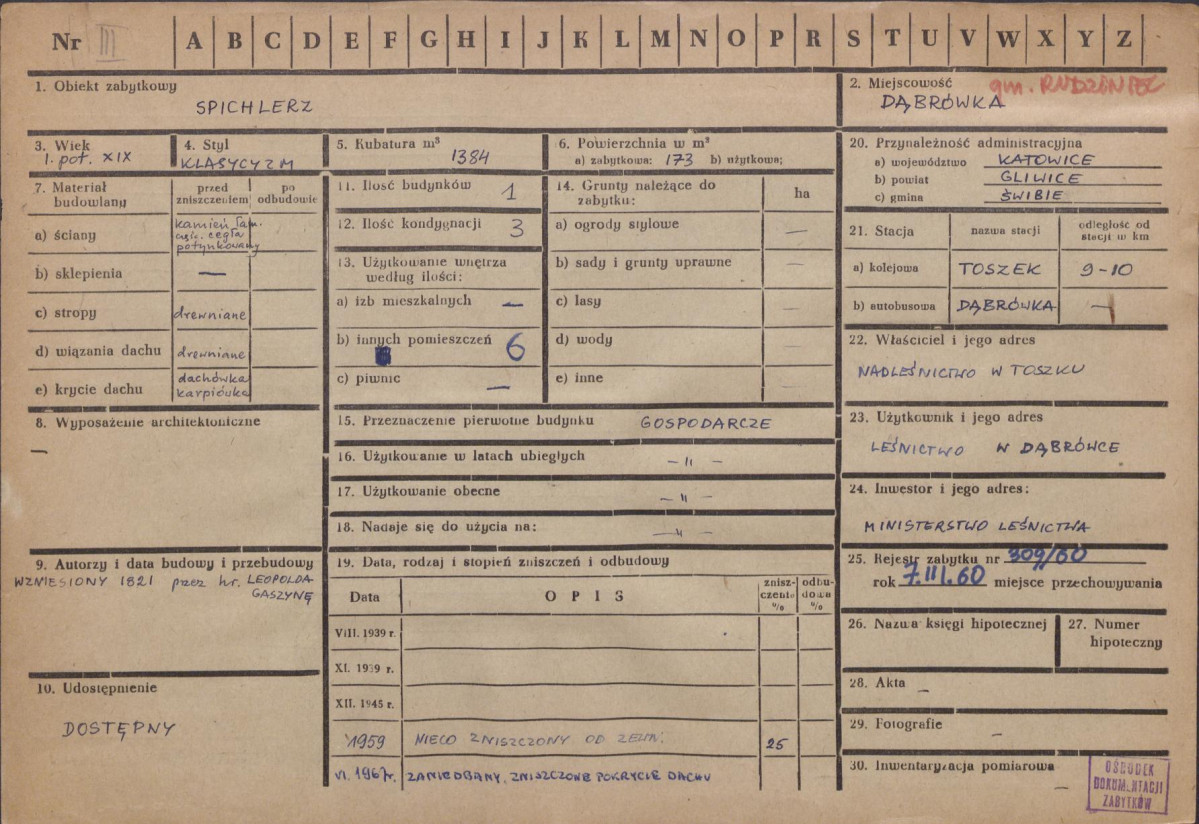 Nr III A B C D E F G H I J K L M N O P R S T U V W X Y Z
1. Obiekt zabytkowy
SPICHLERZ
2. Miejscowość gm. RUDZINIEC
DĄBRÓWKA
3. Wiek
1. poł. XIX
4. Styl
KLASYCYZM
5. Kubatura m³
1384
6. Powierzchnia w m²
a) zabytkowa: 173 b) użytkowa;
7. Materiał budowlany
przed zniszczeniem
po odbudowie
a) ściany
kamień łam.
cegła
potynkowany
b) sklepienia —
c) stropy drewniane
d) wiązania dachu drewniane
e) krycie dachu dachówka karpiówka
8. Wyposażenie architektoniczne
—
9. Autorzy i data budowy i przebudowy
WZNIESIONY 1821 przez hr. LEOPOLDA
GASZYNĘ
10. Udostępnienie
DOSTĘPNY
11. Ilość budynków 1
12. Ilość kondygnacji 3
13. Użytkowanie wnętrza
według ilości:
a) izb mieszkalnych —
b) innych pomieszczeń 6
c) piwnic —
14. Grunty należące do
zabytku:
ha
a) ogrody stylowe —
b) sady i grunty uprawne —
c) lasy —
d) wody —
e) inne —
15. Przeznaczenie pierwotne budynku GOSPODARCZE
16. Użytkowanie w latach ubiegłych — „ —
17. Użytkowanie obecne — „ —
18. Nadaje się do użycia na: — „ —
19. Data, rodzaj i stopień zniszczeń i odbudowy
Data
OPIS
znisz-
czenia
%
odbu-
dowa
%
VIII. 1939 r.
XI. 1939 r.
XII. 1945 r.
1959 NIECO ZNISZCZONY OD ZEWN. 25
VI. 1967r. ZANIEDBANY, ZNISZCZONE POKRYCIE DACHU
20. Przynależność administracyjna
a) województwo KATOWICE
b) powiat GLIWICE
c) gmina ŚWIBIE
21. Stacja
nazwa stacji
odległość od
stacji w km
a) kolejowa TOSZEK 9-10
b) autobusowa DĄBRÓWKA —
22. Właściciel i jego adres
NADLEŚNICTWO W TOSZKU
23. Użytkownik i jego adres
LEŚNICTWO W DĄBRÓWCE
24. Inwestor i jego adres:
MINISTERSTWO LEŚNICTWA
25. Rejestr zabytku nr 309/60
rok 7.III.60 miejsce przechowywania
26. Nazwa księgi hipotecznej
27. Numer
hipoteczny
28. Akta —
29. Fotografie —
30. Inwentaryzacja pomiarowa —
OŚRODEK
DOKUMENTACJI
ZABYTKÓW